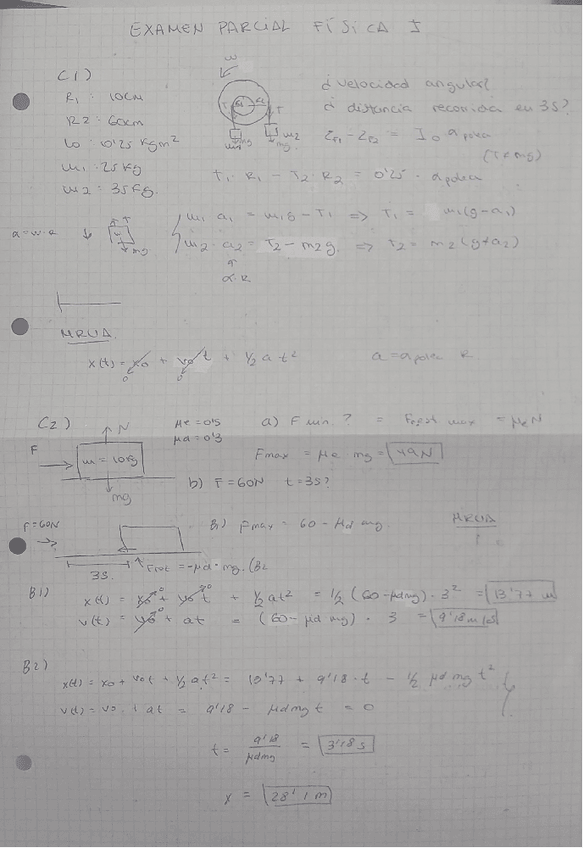 EXAMEN PARCIAL FÍSICA I
C1)
R1: 10cm
R2: 60cm
I0: 0'25 kgm²
m1: 25 kg
m2: 35 kg.
ω
T
T
m2
mg
mg
¿ velocidad angular?
¿ distancia recorrida en 3s?
T1 · R1 - T2 · R2 = 0'25 · αpolea
T
mg
m1 a1 = m1g - T1 => T1 = m1(g-a1)
m2 · a2 = T2 - m2g => T2 = m2(g+a2)
α·R
MRUA
x(t) = x0 + v0t + ½ a t²
0
0
a = αpolea R
C2)
N
F
m = 10kg
mg
μe = 0'5
μd = 0'3
a) F min. ? = Froz max = μe N
Fmax = μe mg = 49N
b) F = 60N t = 3s?
F = 60N
3s
Froz = -μd · mg. (B2
B1) Fmax = 60 - μd mg
MRUA
B1)
x(t) = x0 + v0t + ½ at² = ½ (60 - μdmg) · 3² = 13'77 m
v(t) = v0 + at = (60 - μd mg) · 3 = 9'18 m/s
B2)
x(t) = x0 + v0t + ½ at² = 13'77 + 9'18 · t - ½ μd mg t²
v(t) = v0 + at = 9'18 - μdmg t = 0
t = 9'18 / μdmg = 3'18 s
x = 28'1 m